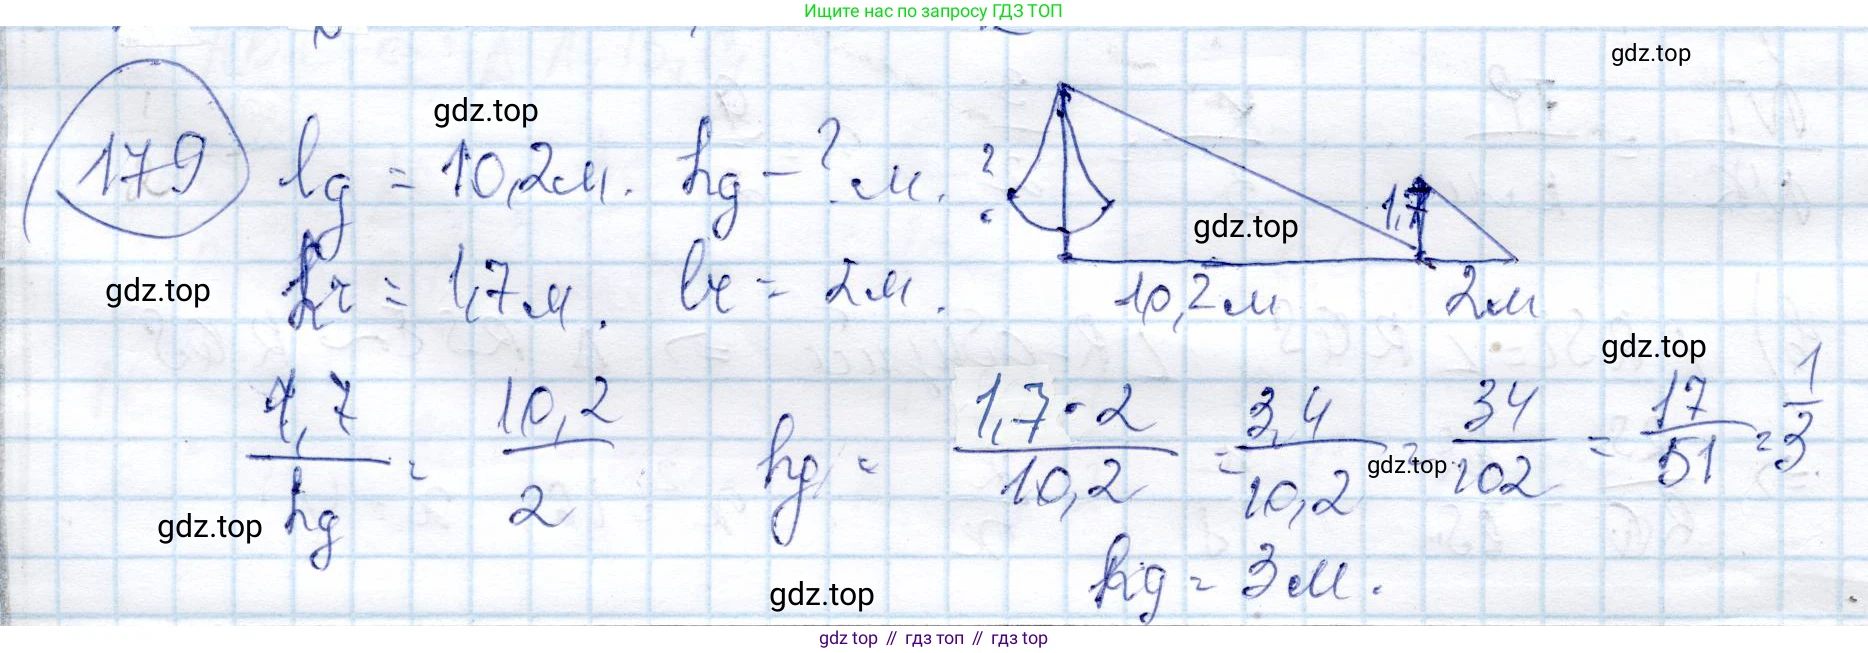 Ищите нас по запросу ГДЗ ТОП
gdz.top
179 lд = 10,2м. hд - ? м.
gdz.top
?
1,7
gdz.top
hч = 1,7м. lч = 2м.
gdz.top
10,2м 2м
gdz.top
1,7/hд = 10,2/2 hд = 1,7·2/10,2 = 3,4/10,2 = 34/102 = 17/51 = 1/3
gdz.top
gdz.top
hд = 3м.
gdz.top
gdz top // гдз топ // гдз top